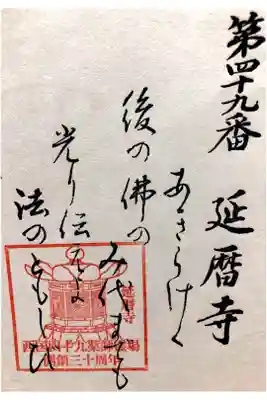 第四十九番 延暦寺
あきらけく
後の佛の
み代までも
光り伝えよ
法のともしび
延暦寺
西国四十九薬師霊場
開創三十周年